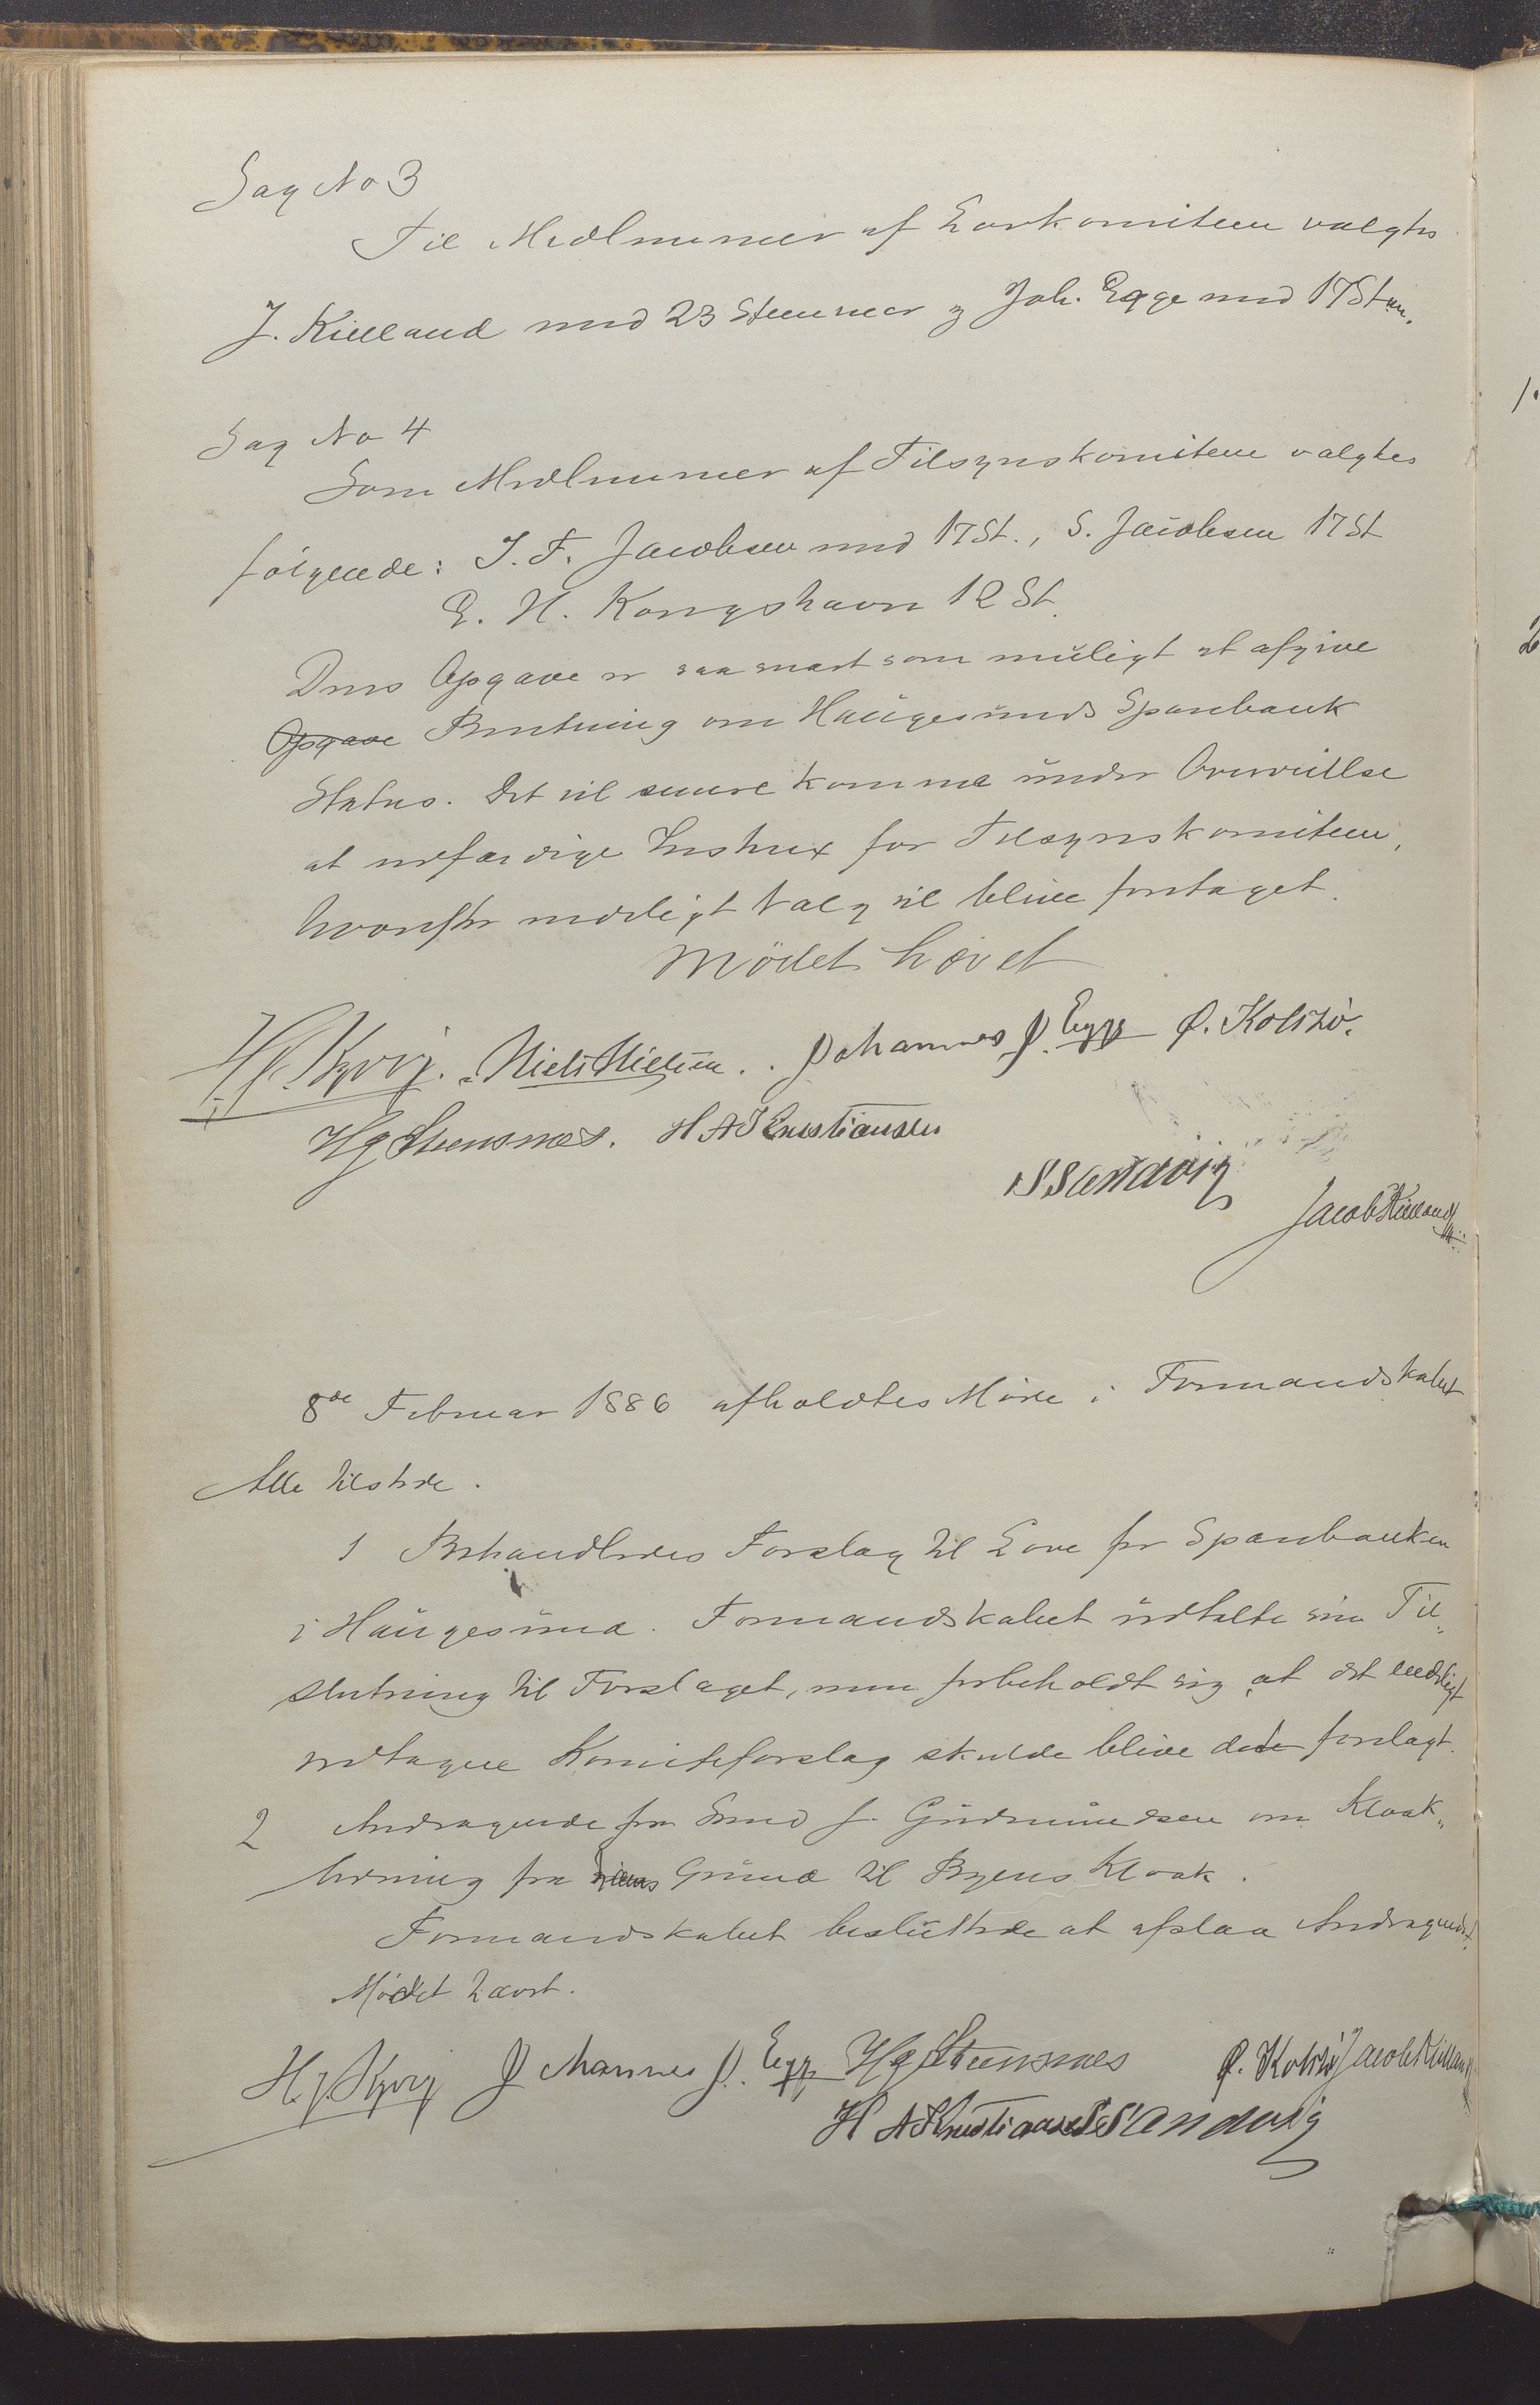 Sag No 3
Til Medlemmer af Lovkomiteen valgtes
J. Kielland med 23 Stemmer og Joh. Egge med 17 Stem.
Sag No 4
Som Medlemmer af Tilsynskomiteen valgtes
følgende: J. F. Jacobsen med 17 St., S. Jacobsen 17 St
E. H. Kongshavn 12 St.
Dens Opgave er saa snart som muligt at afgive
Opgave Beretning om Haugesunds Sparebank
Status. Det vil senere komme under Overveielse
at udfærdige Instrux for Tilsynskomiteen,
hvorefter endeligt Valg vil blive foretaget.
Mödet hævet
Niels Nielsen. Johannes J. Egge O. Kolstö.
Hg Steensnæs. H A Kristiansen
S Sandvig
Jacob Kielland
8de Februar 1886 afholdtes Möde i Formandskabet
Alle tilstede.
1 Behandledes Forslag til Love for Sparebanken
i Haugesund. Formandskabet udtalte sin Til„
slutning til Forslaget, men forbeholdt sig, at det endeligt
vedtagne Komiteforslag skulde blive dete forelagt.
2 Andragende fra Smed J. Gudmundsen om Kloak„
ledning fra hans Grund til Byens Kloak.
Formandskabet besluttede at afslaa Andragendet.
Mödet hævet.
Johannes J. Egge Hg Steensnæs O. Kolstö Jacob Kielland
H A Kristiansen S Sandvig